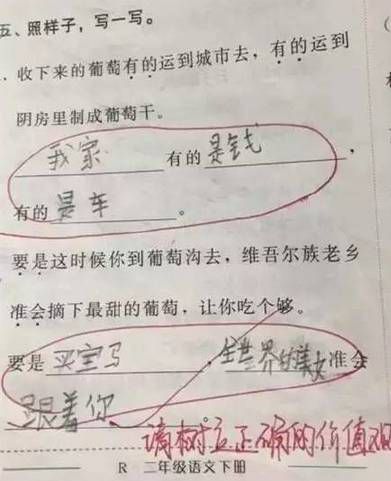 五、照样子，写一写。
.收下来的葡萄有的运到城市去，有的运到
阴房里制成葡萄干。
我家 有的是钱，
有的是车。
要是这时候你到葡萄沟去，维吾尔族老乡
准会摘下最甜的葡萄，让你吃个够。
要是买宝马，全世界的美女准会
跟着你。
请树立正确的价值观
R 二年级语文下册